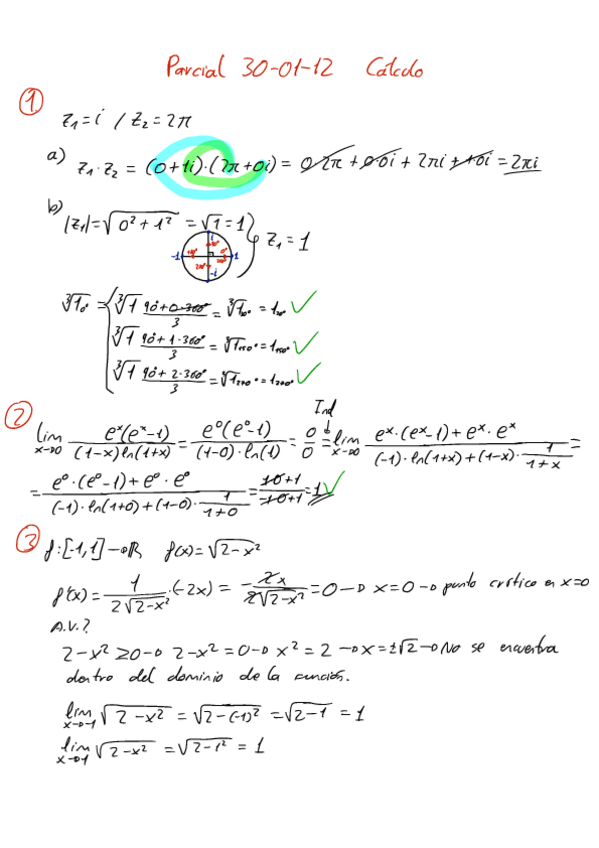 Parcial 30-01-12 Cálculo
① z₁ = i / z₂ = 2π
a) z₁ · z₂ = (0+1i)·(2π+0i) = 0·2π + 0·0i + 2πi + 0i = 2πi
b) |z₁| = √(0² + 1²) = √1 = 1 } z₁ = 1
i
-1 1
-i
∛1₀ = { ∛1 (90+0·360°)/3 = ∛1₃₀° = 1₃₀° ✓
∛1 (90+1·360°)/3 = ∛1₁₅₀° = 1₁₅₀° ✓
∛1 (90+2·360°)/3 = ∛1₂₇₀° = 1₂₇₀° ✓
Ind
② lim x→0 eˣ(eˣ-1)/((1-x)ln(1+x)) = e⁰(e⁰-1)/((1-0)·ln(1)) = 0/0 = lim x→0 (eˣ·(eˣ-1)+eˣ·eˣ)/((-1)·ln(1+x)+(1-x)·1/(1+x)) =
= (e⁰·(e⁰-1)+e⁰·e⁰)/((-1)·ln(1+0)+(1-0)·1/(1+0)) = (10+1)/(-10+1) = 1 ✓
③ f:[-1,1]→ℝ f(x)=√(2-x²)
f'(x) = 1/(2√(2-x²))·(-2x) = -2x/(2√(2-x²)) = 0 → x=0 → punto crítico en x=0
A.V.?
2-x² ≥ 0 → 2-x² = 0 → x² = 2 → x = ±√2 → No se encuentra
dentro del dominio de la función.
lim x→-1 √(2-x²) = √(2-(-1)²) = √(2-1) = 1
lim x→1 √(2-x²) = √(2-1²) = 1